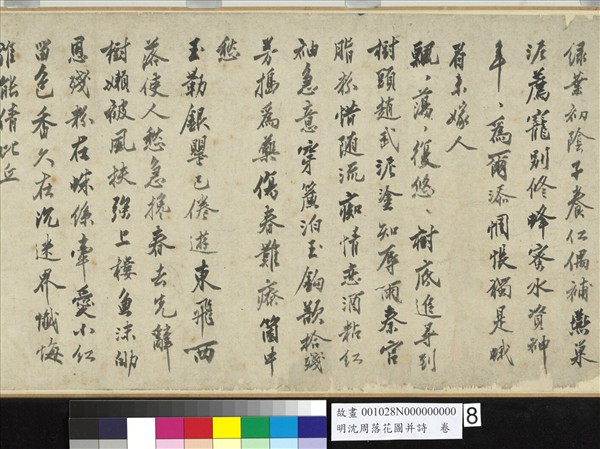 綠葉初陰子養仁偶補燕巢
泥薦寵別修蜂蜜水資神
年〻為爾添惆悵獨是蛾
眉未嫁人
飄〻蕩〻復悠〻樹底追尋到
樹頭趙武泥塗知辱雨秦宮
脂粉惜隨流痴情戀酒粘紅
袖急意穿簾泊玉鉤欲拾殘
芳搗為藥傷春難療箇中
愁
玉勒銀罌已倦遊東飛西
落使人愁急攙春去先辭
樹嬾被風扶強上樓魚沫劬
恩殘粉在蛛絲牽愛小紅
留色香久在沉迷界懺悔
誰能倩比丘
故畫 001028N000000000
明沈周落花圖并詩 卷
8